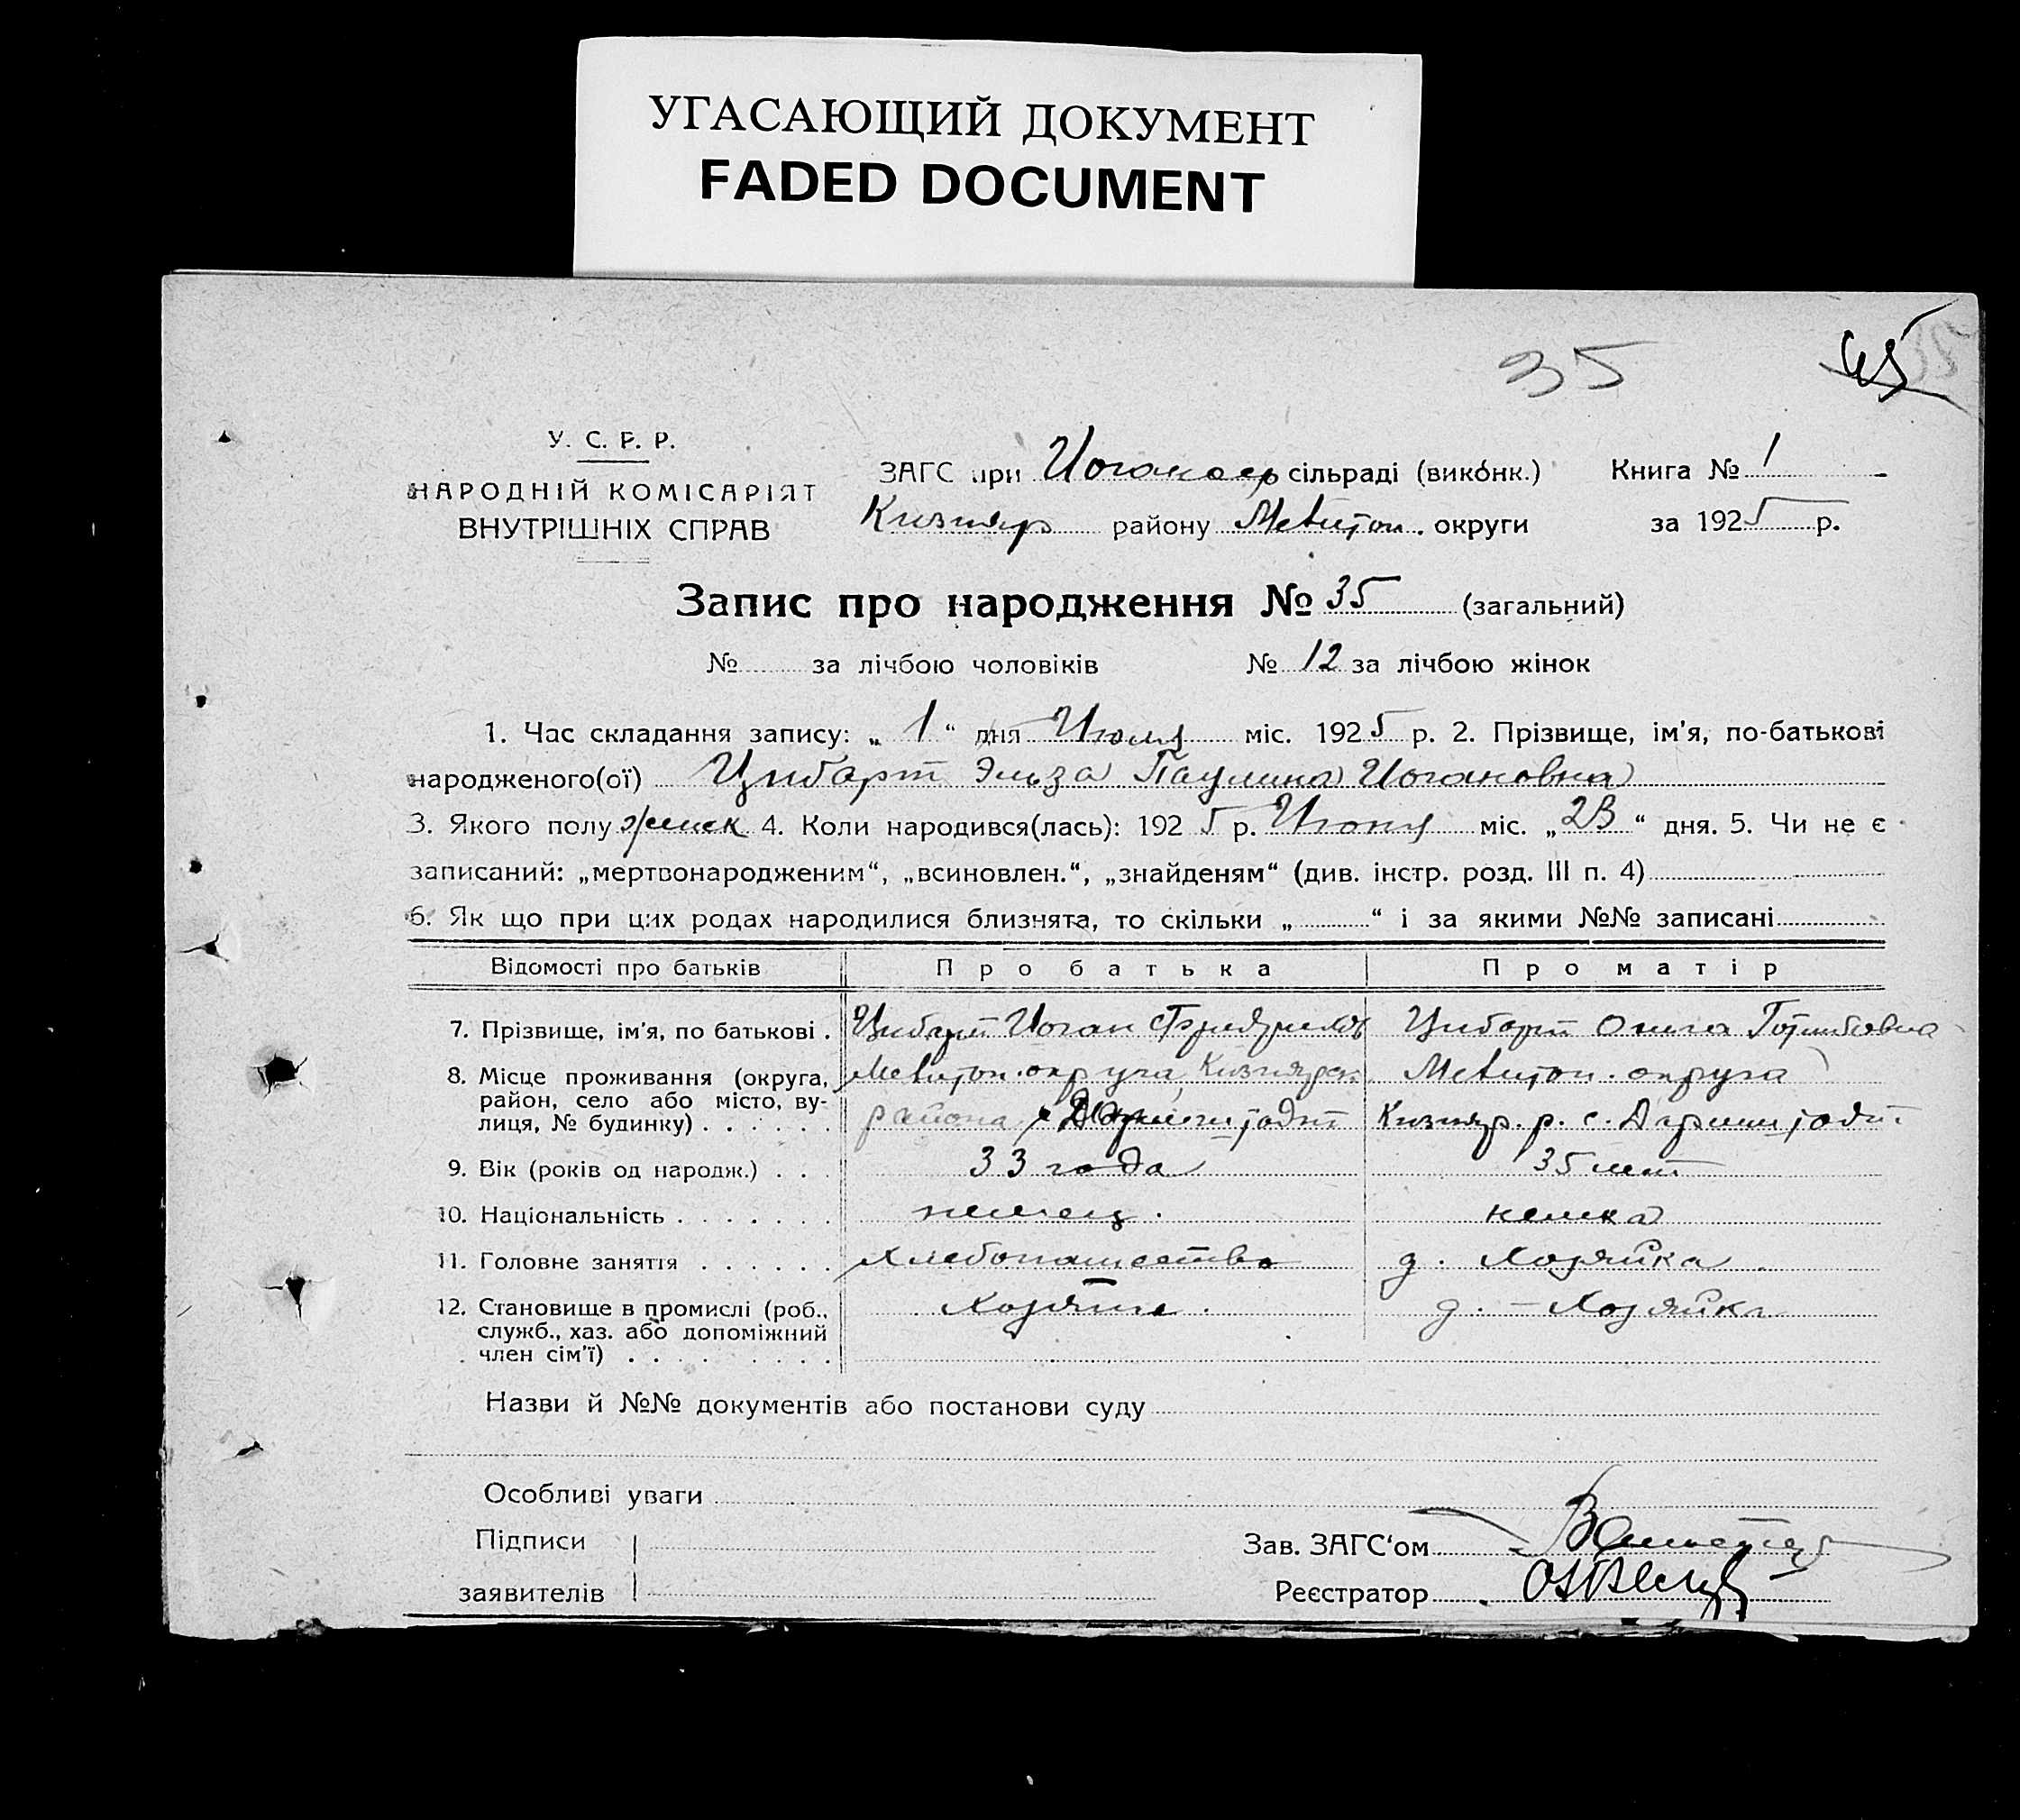 УГАСАЮЩИЙ ДОКУМЕНТ
FADED DOCUMENT
35
У. С. Р. Р.
НАРОДНІЙ КОМІСАРІЯТ
ВНУТРІШНІХ СПРАВ
ЗАГС при сільраді (виконк.) Книга № 1
Кизияр району округи за 1925 р.
Запис про народження № 35 (загальний)
№ за лічбою чоловіків № 12 за лічбою жінок
1. Час складання запису: „ 1 “ дня Июля міс. 1925 р. 2. Прізвище, ім'я, по-батькові
народженого(ої) Цибарт Эльза Паулина Иогановна
3. Якого полу женск 4. Коли народився(лась): 1925 р. Июня міс. „ “ дня. 5. Чи не є
записаний: „мертвонародженим“, „всиновлен.“, „знайденям“ (див. інстр. розд. III п. 4)
6. Як що при цих родах народилися близнята, то скільки „ “ і за якими №№ записані
Відомості про батьків Про батька Про матір
7. Прізвище, ім'я, по батькові . Цибарт Иоган Фридрихов Цибарт Готлибовна
8. Місце проживання (округа, округа округа
район, село або місто, ву- района Кизияр. р. с.
лиця, № будинку)
9. Вік (років од народж.) 33 года 35 лет
10. Національність немец. немка
11. Головне заняття хлебопашество д. хозяйка
12. Становище в промислі (роб., хозяин. д. – хозяйка
служб., хаз. або допоміжний
член сім'ї)
Назви й №№ документів або постанови суду
Особливі уваги
Підписи
заявителів
Зав. ЗАГС'ом
Реєстратор